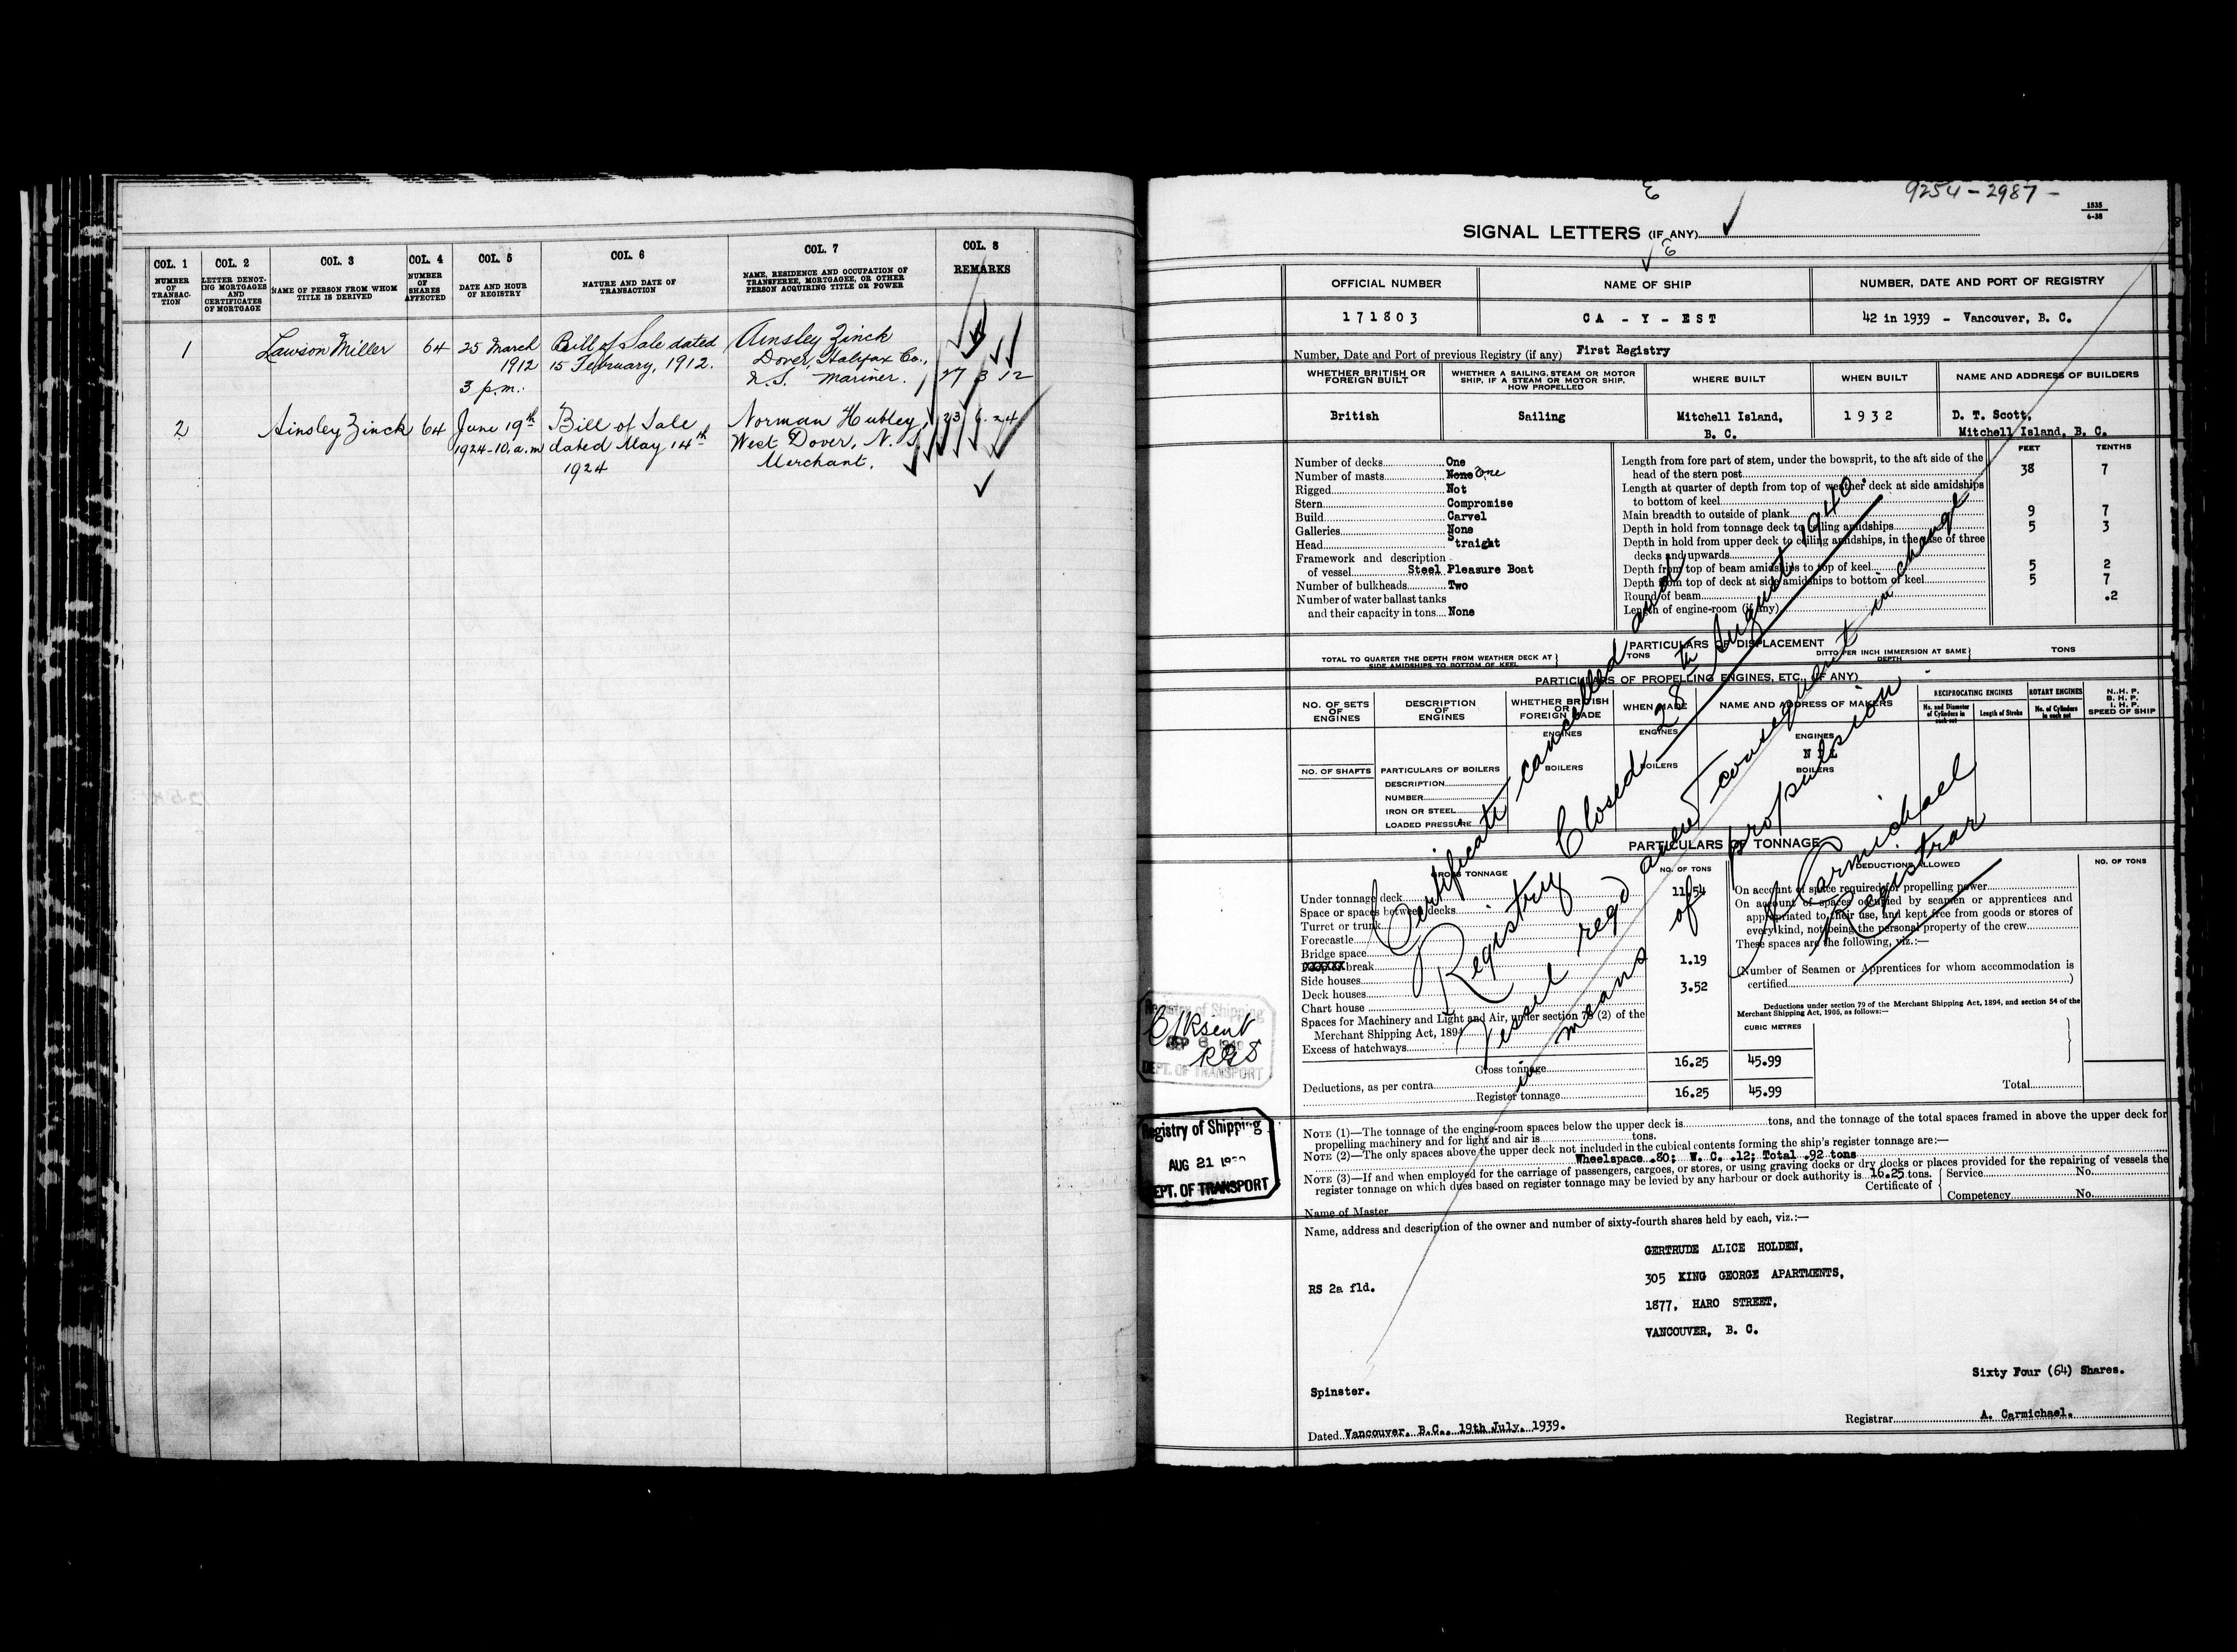 COL. 1
NUMBER OF TRANSACTION
COL. 2
LETTER DENOTING MORTGAGES AND CERTIFICATES OF MORTGAGE
COL. 3
NAME OF PERSON FROM WHOM TITLE IS DERIVED
COL. 4
NUMBER OF SHARES AFFECTED
COL. 5
DATE AND HOUR OF REGISTRY
COL. 6
NATURE AND DATE OF TRANSACTION
COL. 7
NAME, RESIDENCE AND OCCUPATION OF TRANSFEREE, MORTGAGEE, OR OTHER PERSON ACQUIRING TITLE OR POWER
COL. 8
REMARKS
1 Lawson Miller 64 25 March Bill of Sale dated Ainsley Zinck
1912 15 February, 1912. Dover, Halifax Co.,
3 p.m. N.S. Mariner. 27 3 12
2 Ainsley Zinck 64 June 19th Bill of Sale Norman Hubley, 23 6. 24
1924-10.a.m dated May 14th West Dover, N. S.
1924 Merchant.
9254-2987-
1535
6-38
SIGNAL LETTERS (IF ANY)
OFFICIAL NUMBER NAME OF SHIP NUMBER, DATE AND PORT OF REGISTRY
171803 CA - Y - EST 42 in 1939 - Vancouver, B. C.
Number, Date and Port of previous Registry (if any) First Registry
WHETHER BRITISH OR FOREIGN BUILT
WHETHER A SAILING, STEAM OR MOTOR SHIP, IF A STEAM OR MOTOR SHIP, HOW PROPELLED
WHERE BUILT
WHEN BUILT
NAME AND ADDRESS OF BUILDERS
British Sailing Mitchell Island, 1932 D. T. Scott,
B. C. Mitchell Island, B. C.
Number of decks One
Number of masts None One
Rigged Not
Stern Compromise
Build Carvel
Galleries None
Head Straight
Framework and description
of vessel Steel Pleasure Boat
Number of bulkheads Two
Number of water ballast tanks
and their capacity in tons None
FEET TENTHS
Length from fore part of stem, under the bowsprit, to the aft side of the
head of the stern post 38 7
Length at quarter of depth from top of weather deck at side amidships
to bottom of keel
Main breadth to outside of plank 9 7
Depth in hold from tonnage deck to ceiling amidships 5 3
Depth in hold from upper deck to ceiling amidships, in the case of three
decks and upwards
Depth from top of beam amidships to top of keel 5 2
Depth from top of deck at side amidships to bottom of keel 5 7
Round of beam .2
Length of engine-room (if any)
PARTICULARS OF DISPLACEMENT
TOTAL TO QUARTER THE DEPTH FROM WEATHER DECK AT SIDE AMIDSHIPS TO BOTTOM OF KEEL
TONS
DITTO PER INCH IMMERSION AT SAME DEPTH
TONS
PARTICULARS OF PROPELLING ENGINES, ETC. (IF ANY)
NO. OF SETS OF ENGINES
DESCRIPTION OF ENGINES
WHETHER BRITISH OR FOREIGN MADE
WHEN MADE
NAME AND ADDRESS OF MAKERS
RECIPROCATING ENGINES
No. and Diameter of Cylinders in each set
Length of Stroke
ROTARY ENGINES
No. of Cylinders in each set
N. H. P.
B. H. P.
I. H. P.
SPEED OF SHIP
ENGINES ENGINES ENGINES
NIL
NO. OF SHAFTS PARTICULARS OF BOILERS BOILERS BOILERS BOILERS
DESCRIPTION
NUMBER
IRON OR STEEL
LOADED PRESSURE
PARTICULARS OF TONNAGE
GROSS TONNAGE NO. OF TONS DEDUCTIONS ALLOWED NO. OF TONS
Under tonnage deck 11.54
Space or spaces between decks
Turret or trunk
Forecastle
Bridge space
break 1.19
Side houses
Deck houses 3.52
Chart house
Spaces for Machinery and Light and Air, under section 78 (2) of the
Merchant Shipping Act, 1894
Excess of hatchways
Gross tonnage 16.25 45.99
Deductions, as per contra
Register tonnage 16.25 45.99
On account of space required for propelling power
On account of spaces occupied by seamen or apprentices and
appropriated to their use, and kept free from goods or stores of
every kind, not being the personal property of the crew
These spaces are the following, viz.:—
(Number of Seamen or Apprentices for whom accommodation is
certified )
Deductions under section 79 of the Merchant Shipping Act, 1894, and section 54 of the
Merchant Shipping Act, 1906, as follows:—
CUBIC METRES
Total
Certificate cancelled and
Registry Closed 28th August 1940.
Vessel regd anew consequent in change
in means of propulsion
A Carmichael
Registrar
Registry of Shipping
SEP 6 1940
DEPT. OF TRANSPORT
Registry of Shipping
AUG 21
DEPT. OF TRANSPORT
NOTE (1)—The tonnage of the engine-room spaces below the upper deck is tons, and the tonnage of the total spaces framed in above the upper deck for
propelling machinery and for light and air is tons.
NOTE (2)—The only spaces above the upper deck not included in the cubical contents forming the ship's register tonnage are:—
Wheelspace .80; W. C. .12; Total .92 tons
NOTE (3)—If and when employed for the carriage of passengers, cargoes, or stores, or using graving docks or dry docks or places provided for the repairing of vessels the
register tonnage on which dues based on register tonnage may be levied by any harbour or dock authority is 16.25 tons.
Name of Master
Certificate of
Service No.
Competency No.
Name, address and description of the owner and number of sixty-fourth shares held by each, viz.:—
GERTRUDE ALICE HOLDEN,
RS 2a fld.
305 KING GEORGE APARTMENTS,
1877, HARO STREET,
VANCOUVER, B. C.
Sixty Four (64) Shares.
Spinster.
Dated Vancouver, B.C., 19th July, 1939.
Registrar A. Carmichael.